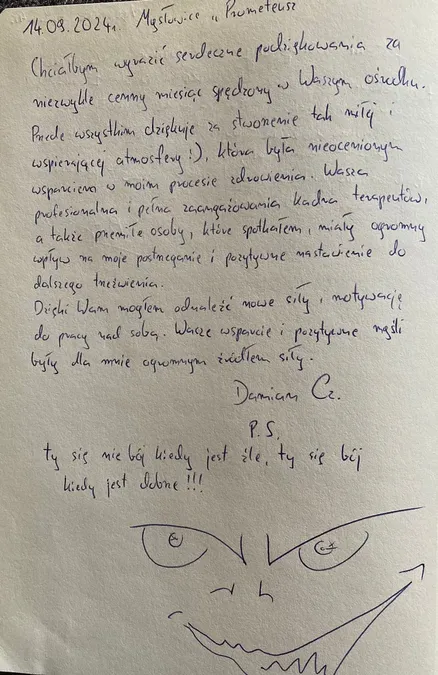 14.09.2024r. Mysłowice „Prometeusz
Chciałbym wyrazić serdeczne podziękowania za
niezwykle cenny miesiąc spędzony w Waszym ośrodku.
Przede wszystkim dziękuję za stworzenie tak miłej i
wspierającej atmosfery!), która była nieocenionym
wsparciem w moim procesie zdrowienia. Wasza
profesjonalna i pełna zaangażowania kadra terapeutów,
a także przemiłe osoby, które spotkałem, miały ogromny
wpływ na moje postrzeganie i pozytywne nastawienie do
dalszego trzeźwienia.
Dzięki Wam mogłem odnaleźć nowe siły i motywację
do pracy nad sobą. Wasze wsparcie i pozytywne myśli
były dla mnie ogromnym źródłem siły.
Damian Cz.
P.S.
ty się nie bój kiedy jest źle, ty się bój
kiedy jest dobrze!!!